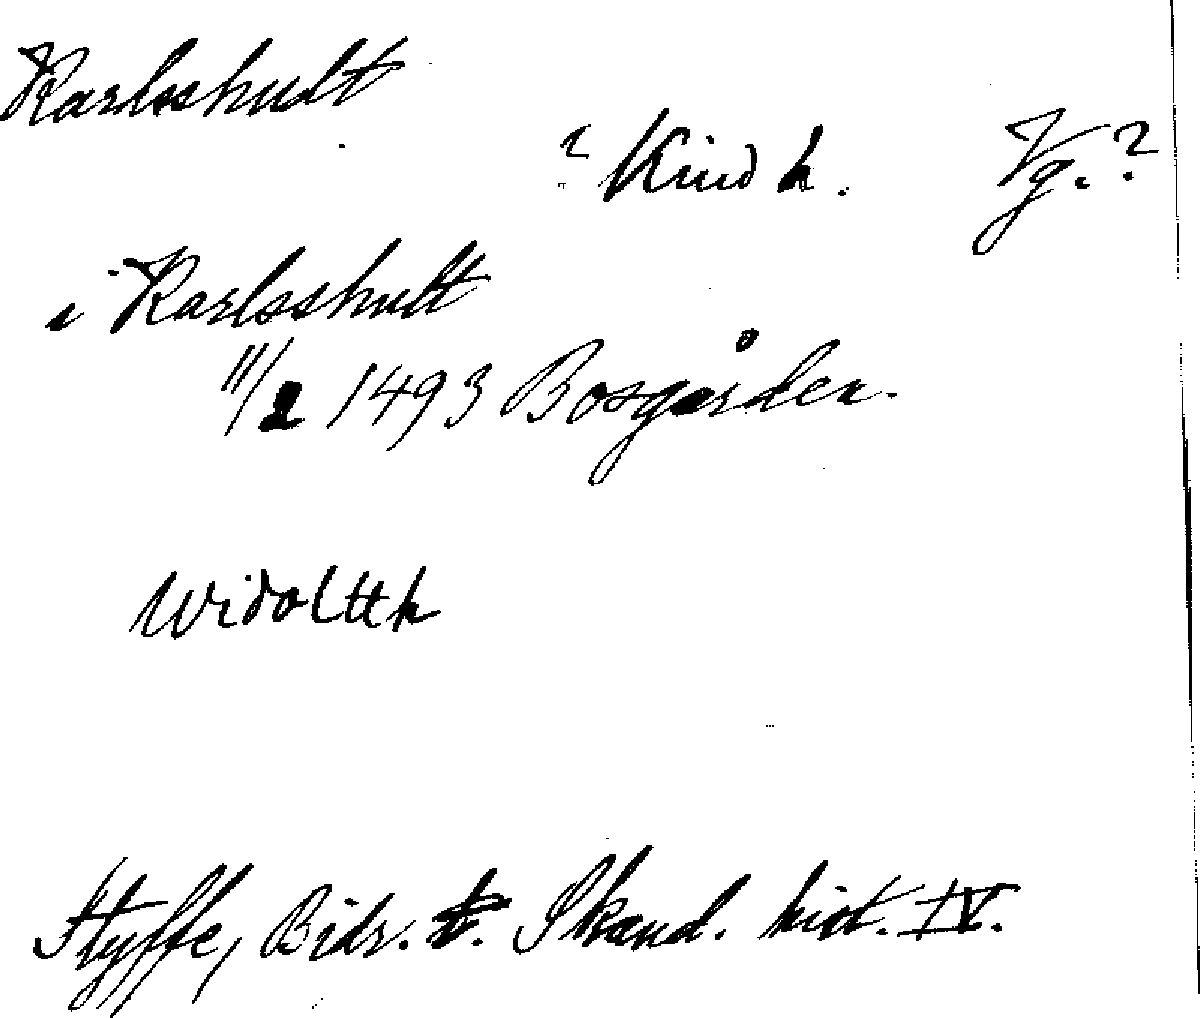 Karlsshult
? Kind h. Vg.?
i Karlsshult
11/2 1493 Bosgården.
Widoltth
Styffe, Bidr. t. Skand. hist. IV.